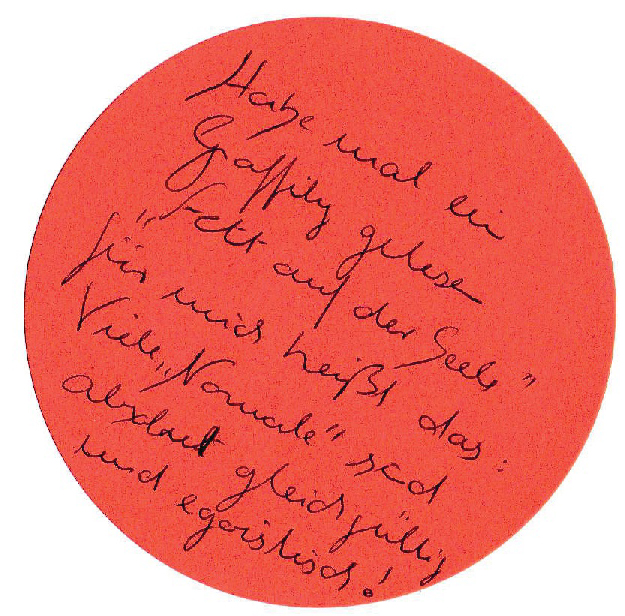 Habe mal ein
Graffity gelesen
"Fett auf der Seele"
für mich heißt das:
Viele „Normale" sind
absolut gleichgültig
und egoistisch!